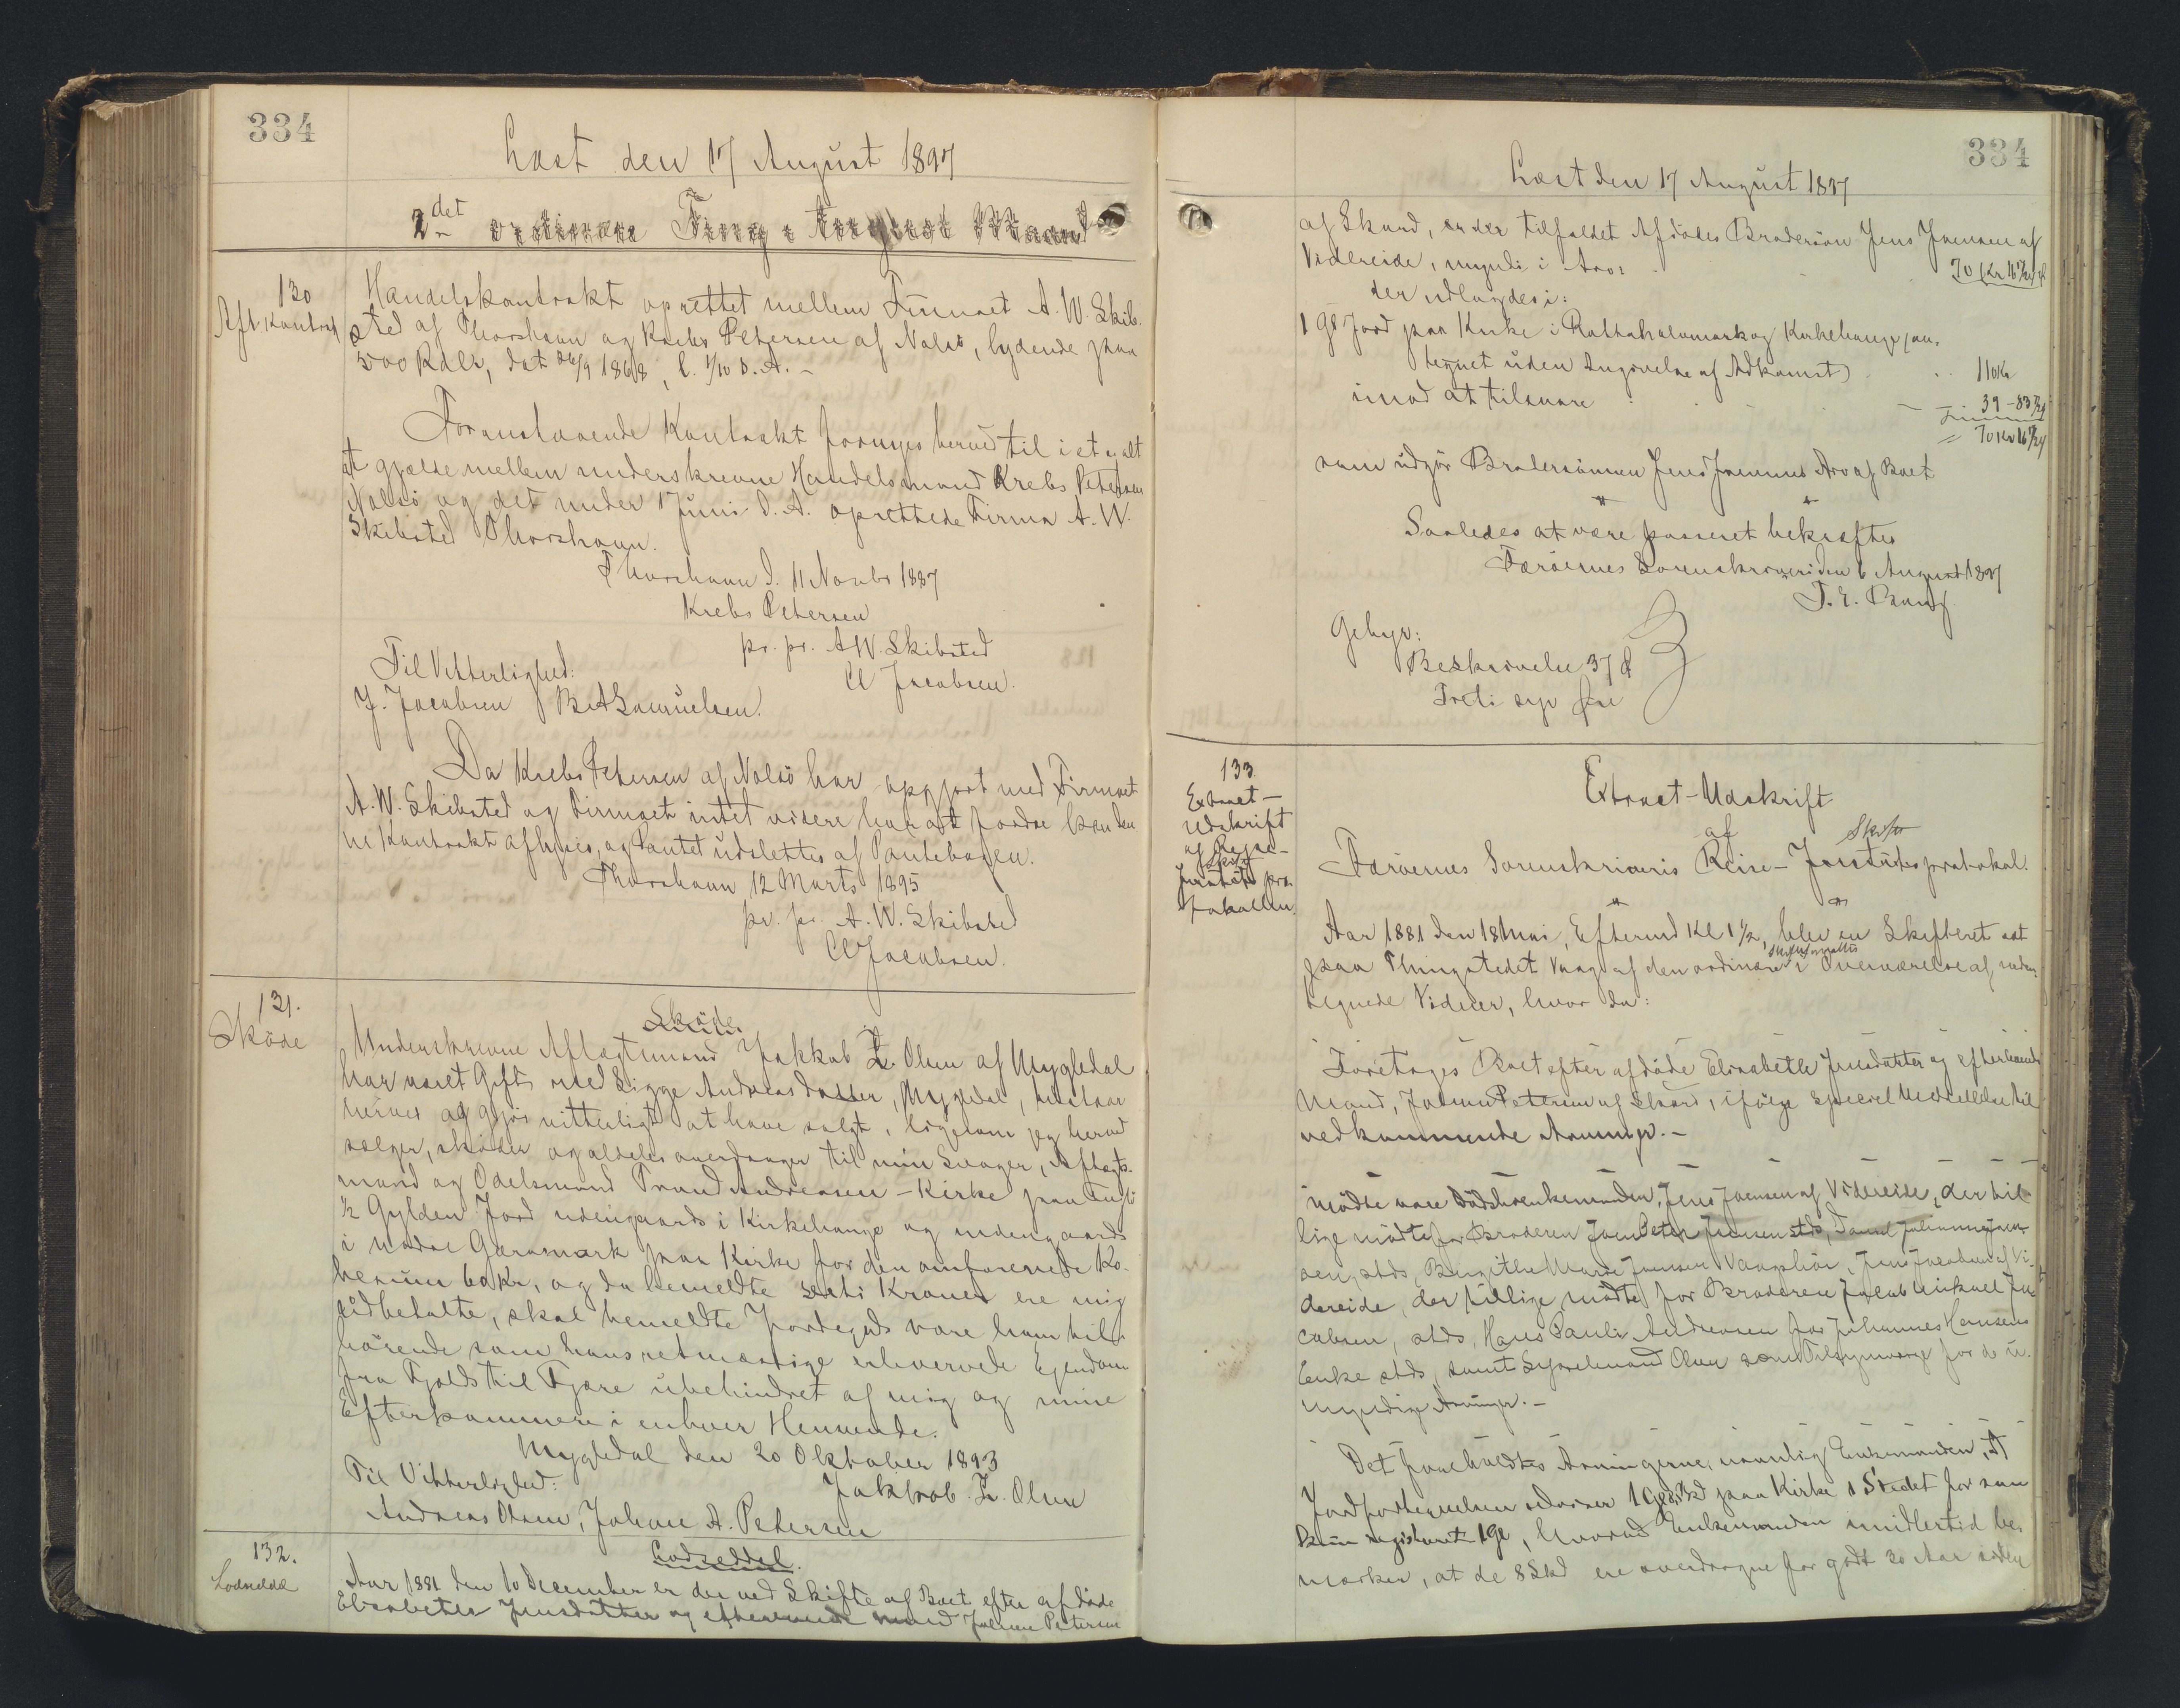 334
Læst den 17 August 1897
2det
130
Afl. Kontrakt
Handelskontrakt oprettet mellem Firmaet A. W. Skib-
sted af Thorshavn og Krebs Petersen af Nolsö, lydende paa
500 Rdlr, dat 26/9 1868, l. 1/10 D. A. –
Foranstaaende Kontrakt fornyes herved til i et og alt
at gjælde mellem underskrevne Handelsmand Krebs Petersen
Nolsö og det under 1 Juni d. A. oprettede Firma A. W.
Skibsted Thorshavn.
Thorshavn d. 11 Novbr 1887
Krebs Petersen
pr. pr. A W. Skibsted
Cl Jacobsen.
Til Vitterlighed:
J. Jacobsen B A Samuelsen.
Da Krebs Petersen af Nolsö har opgjort med Firmaet
A. W. Skibsted og Firmaet intet videre har at fordre kan den
ne Kontrakt aflyses, og Pantet udslettes af Pantebogen.
Thorshavn 12 Marts 1895
pr. pr. A. W. Skibsted
Cl Jacobsen.
131.
Sköde
Sköde.
Underskrevne Aftægtsmand Jakkob Z. Olsen af Mygledal
har været Gift med Sigge Andreasdatter, Mygledal,
herved og gjör vitterligt at have solgt, ligesom jeg herved
sælger, sköder og aldeles overdrager til min Svoger, Aftægts-
mand og Odelsmand Trond Andreasen – Kirke paa Fuglö
½ Gylden Jord udengaards i Kirkehauge og indengaards
i Nordre Garsmark paa Kirke for den omforenede Kö-
besum 60 Kr, og da bemeldte Seksti Kroner ere mig
udbetalte, skal bemeldte Jordegods være ham til-
hörende som hans retmæssige erhvervede Ejendom
fra Fjeld til Fjære ubehindret af mig og mine
Efterkommere i enhver Henseende.
Mygledal den 20 Oktober 1893
Til Vitterlighed:
Jakkob. Z. Olsen
Andreas Olsen, Johan A. Petersen
132.
Lodseddel
Lodseddel.
Aar 1881 den 10 December er der ved Skifte af Boet efter afdöde
Elisabeth Jensdatter og efterlevende Mand Joen Petersen
334
Læst den 17 August 1897
af Skard, er der tilfaldet Afdödes Brodersön Jens Joensen af
Videreide, myndi i Arv:
70 Kr 16 7/24
der udlagdes i:
1 Gl Jord paa Kirke i Rattahalsmark og Kirkehauge (an-
tegnet uden Angivelse af Adkomst)
110 Kr
imod at tilsvare
39 – 83 7/24
70 Kr 16 7/24
som udgör Brodersönnen Jens Joensens Arv af Boet
Saaledes at være passeret bekræftes
Færöernes Sorenskriveri den 6 August 1897
F. E. Bang
Gebyr:
Beskrivelse 37 Ø
Treti syv Øre
133
Extract-
Udskrift
af Rejse-
Skifte
Justits pro-
tokollen.
Extract-Udskrift
af
Færöernes Sorenskriveris Reise- Justitsprotokol.
Skifte
Aar 1881 den 18 Mai, Eftermd Kl 1½, blev en Skifteret sat
paa Thingstedet Vaag af den ordinære i Overværelse af under-
tegnede Vidner, hvor da:
Foretoges Boet efter afdöde Elisabeth Jensdatter og efterlevende
Mand, Joen Petersen af Skard, ifölge speciel Meddelelse til
vedkommende Arvinger. –
Mödte vare Dödsboenkemanden, Jens Joensen af Videreide, der til-
lige mödte for Broderen Joen Peter Joensen stds,
sen, stds, Birgithe Marie Joensen Vaagshöi, Jens Jacobsen af Vi-
dereide, der tillige mödte for Broderen Jacob Mikael Ja-
cobsen, stds, Hans Pauli Andreasen for Johannes Hansens
Enke stds, samt Sysselmand Olsen som Tilsynsværge for de u-
myndige Arvinger. –
Det foreholdtes Arvingerne, navnlig Enkemanden, at
Jordfortegnelsen udviser 1 Gl 8 Skd paa Kirke i Stedet for som
registreret 1 Gl, hvorved Enkemanden imidlertid be-
mærker, at de 8 Skd ere overdragne for godt 30 Aar siden